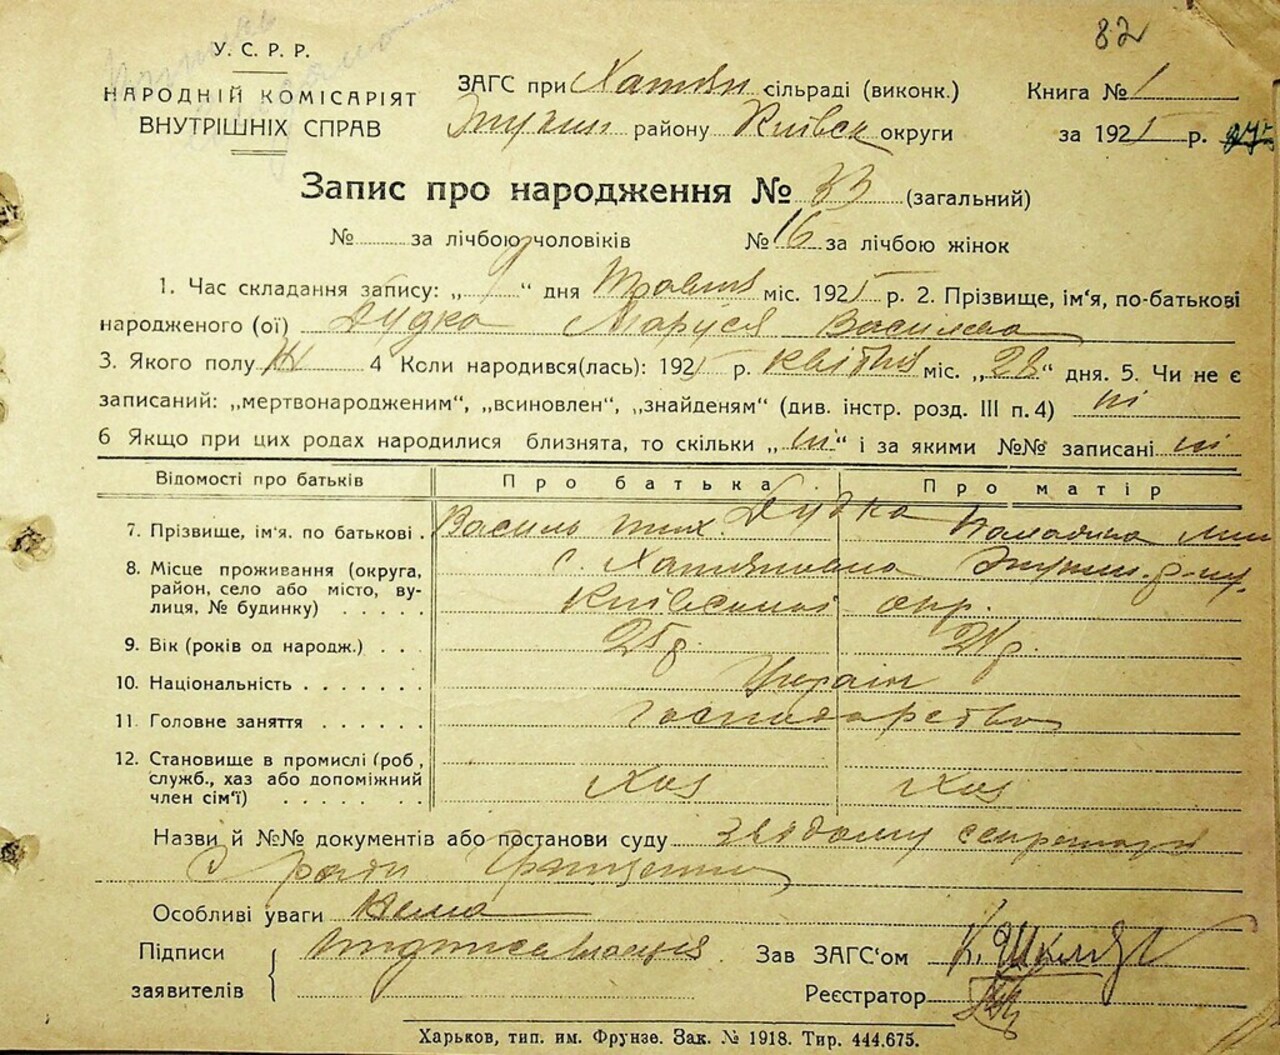 82
У. С. Р. Р.
НАРОДНІЙ КОМІСАРІЯТ
ВНУТРІШНІХ СПРАВ
ЗАГС при Хатян сільраді (виконк.)
району Київськ округи
Книга № 1
за 1925 р.
Запис про народження № 33 (загальний)
№ за лічбою чоловіків № 16 за лічбою жінок
1. Час складання запису: „ 9 “ дня Травня міс. 1925 р. 2. Прізвище, ім'я, по-батькові
народженого (ої) Дудка Маруся Василева
3. Якого полу Ж 4 Коли народився(лась): 1925 р. квітня міс. „28“ дня. 5. Чи не є
записаний: „мертвонародженим“, „всиновлен“, „знайденям“ (див. інстр. розд. III п. 4) ні
6 Якщо при цих родах народилися близнята, то скільки „ні“ і за якими №№ записані ні
Відомості про батьків Про батька Про матір
7. Прізвище, ім'я. по батькові. Василь тих. Дудка
8. Місце проживання (округа, с. Хатяновка
район, село або місто, ву-
лиця, № будинку) Київської окр.
9. Вік (років од народж.) 25 р.
10. Національність Україн
11. Головне заняття господарство
12. Становище в промислі (роб,
служб., хаз або допоміжний
член сім'ї) Хаз Хаз
Назви й №№ документів або постанови суду з відому секретаря
с ради
Особливі уваги Нема
Підписи
заявителів
Зав ЗАГС'ом К. Шкляр
Реєстратор
Харьков, тип. им. Фрунзе. Зак. № 1918. Тир. 444.675.